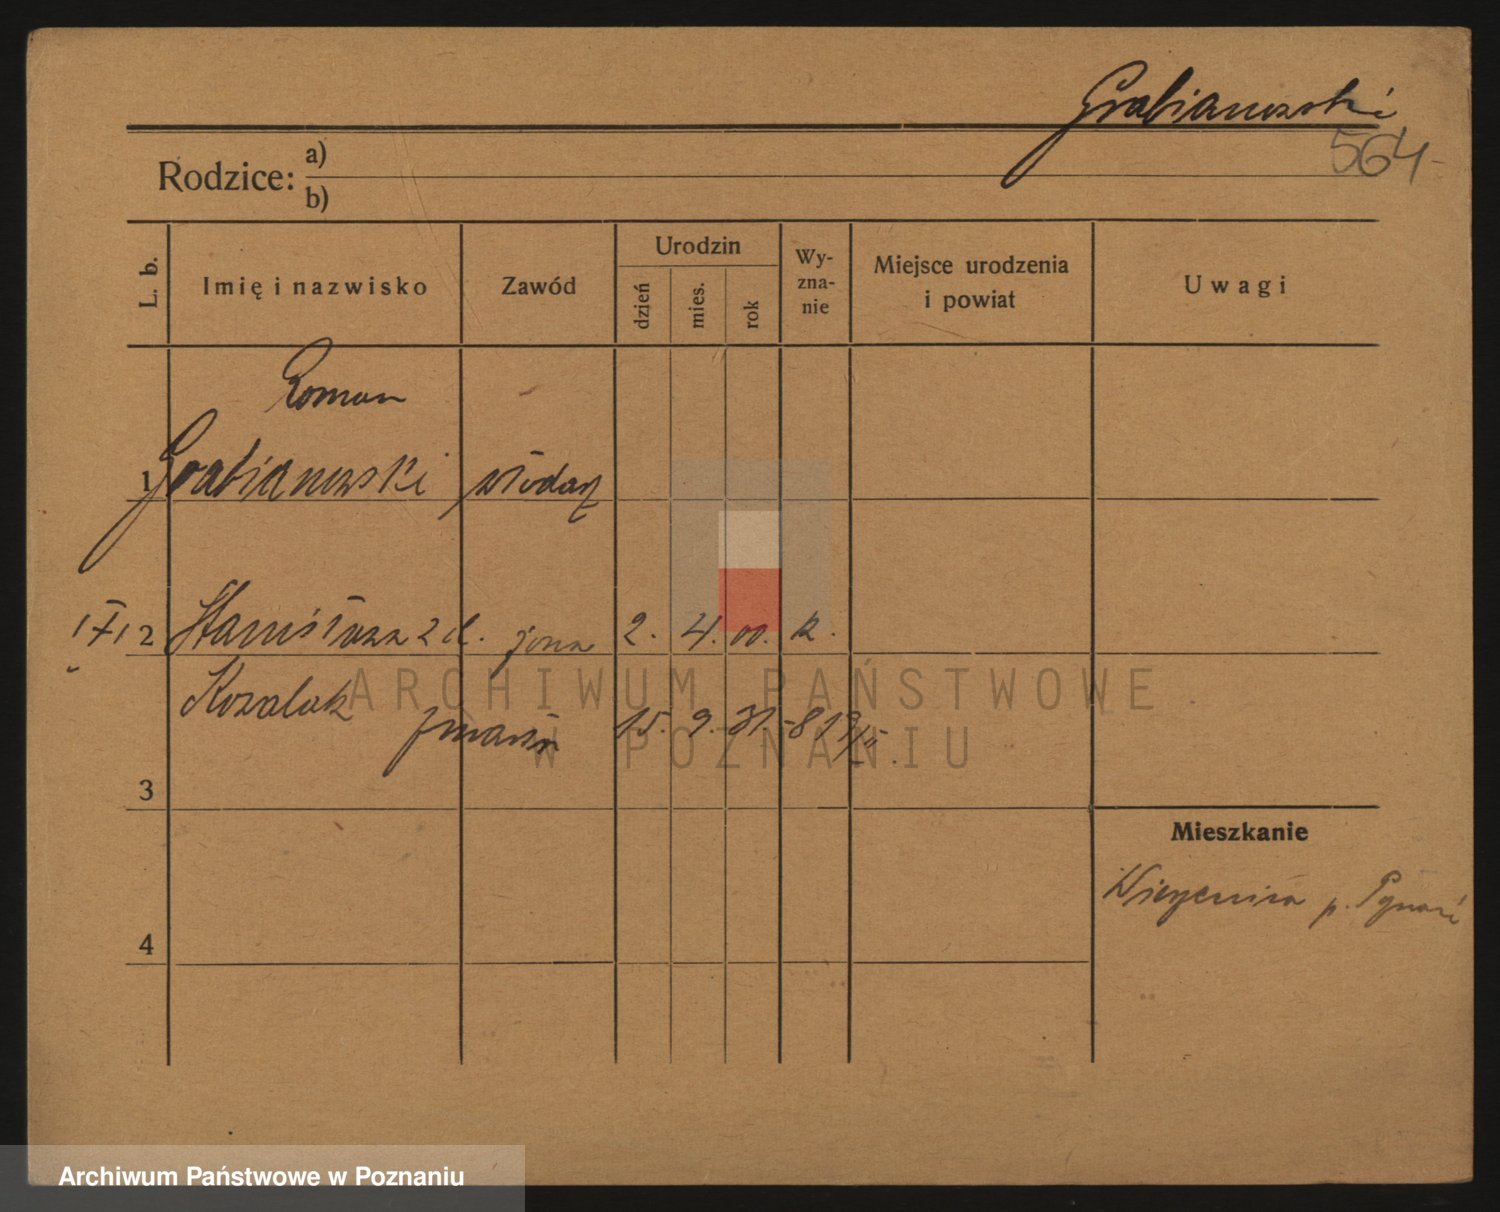 Grabianowski
564
Rodzice: a)
b)
L. b.
Imię i nazwisko
Zawód
Urodzin
dzień
mies.
rok
Wy-
zna-
nie
Miejsce urodzenia
i powiat
Uwagi
Roman
1 Grabianowski włodarz
2 Stanisława z d. żona 2. 4. 00. k.
Kowalak
zmarła 15. 9. 31.
3
4
Mieszkanie
Wierzenica p.
ARCHIWUM PAŃSTWOWE
W POZNANIU
Archiwum Państwowe w Poznaniu